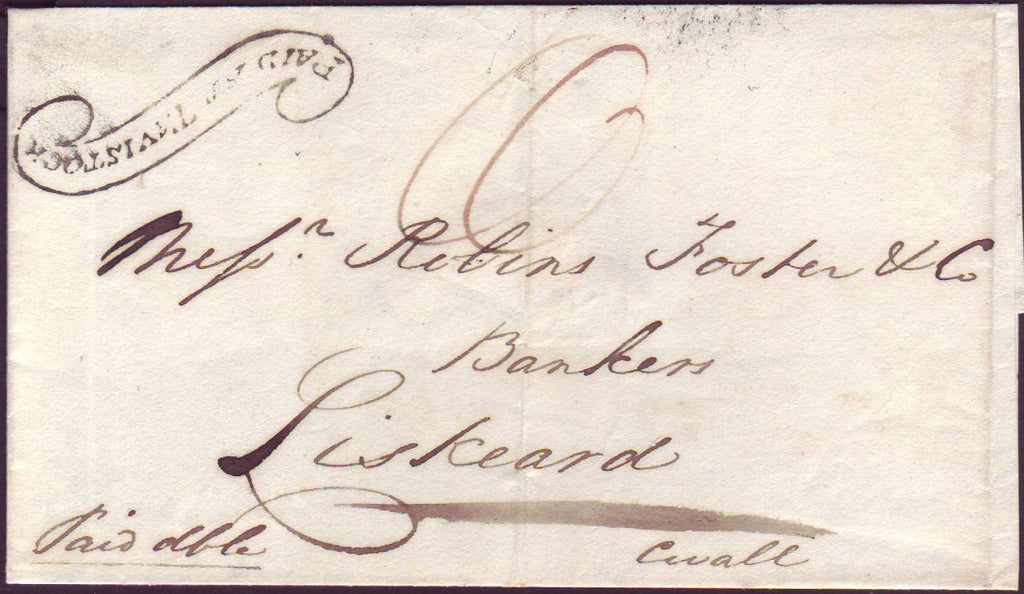 PAID AT TAVISTOCK
6
Messrs. Robins Foster & Co
Bankers
Liskeard
Paid dble
Cwall